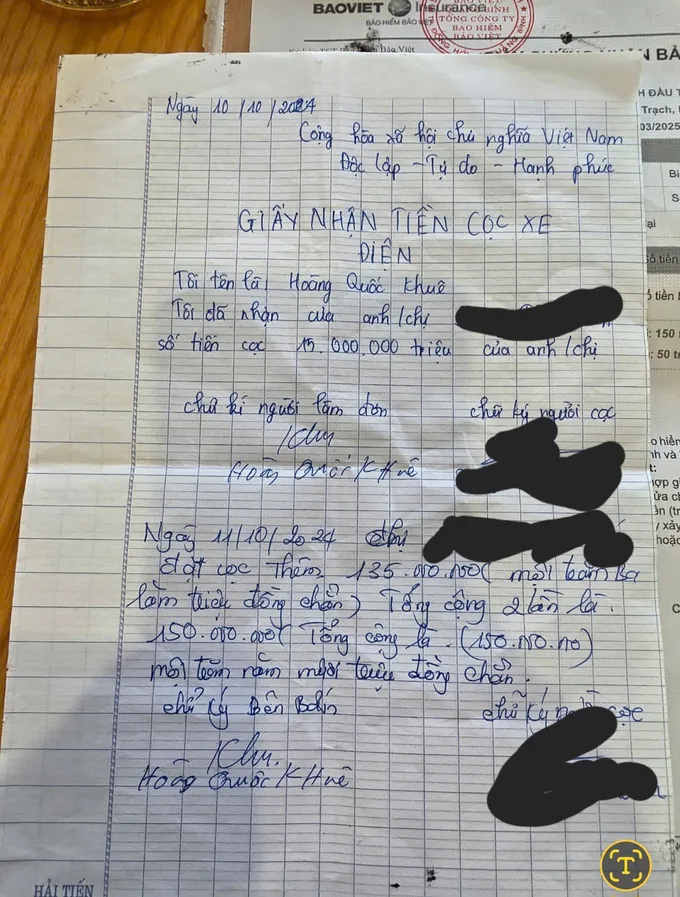 BAOVIET Insurance
BẢO HIỂM BẢO VIỆT
TỔNG CÔNG TY
BẢO HIỂM
BẢO VIỆT
Ngày 10/10/2024
Cộng hòa xã hội chủ nghĩa Việt Nam
Độc lập - Tự do - Hạnh phúc
GIẤY NHẬN TIỀN CỌC XE
ĐIỆN
Tôi tên là Hoàng Quốc Khuê
Tôi đã nhận của anh/chị
số tiền cọc 15.000.000 triệu của anh/chị
chữ kí người làm đơn chữ ký người cọc
Hoàng Quốc Khuê
Ngày 11/10/2024
đặt cọc thêm 135.000.000( một trăm ba
lăm triệu đồng chẵn) Tổng cộng 2 lần là.
150.000.000( Tổng cộng là. (150.000.000)
một trăm năm mươi triệu đồng chẵn.
chữ ký Bên Bán chữ ký cọc
Hoàng Quốc Khuê
HẢI TIẾN